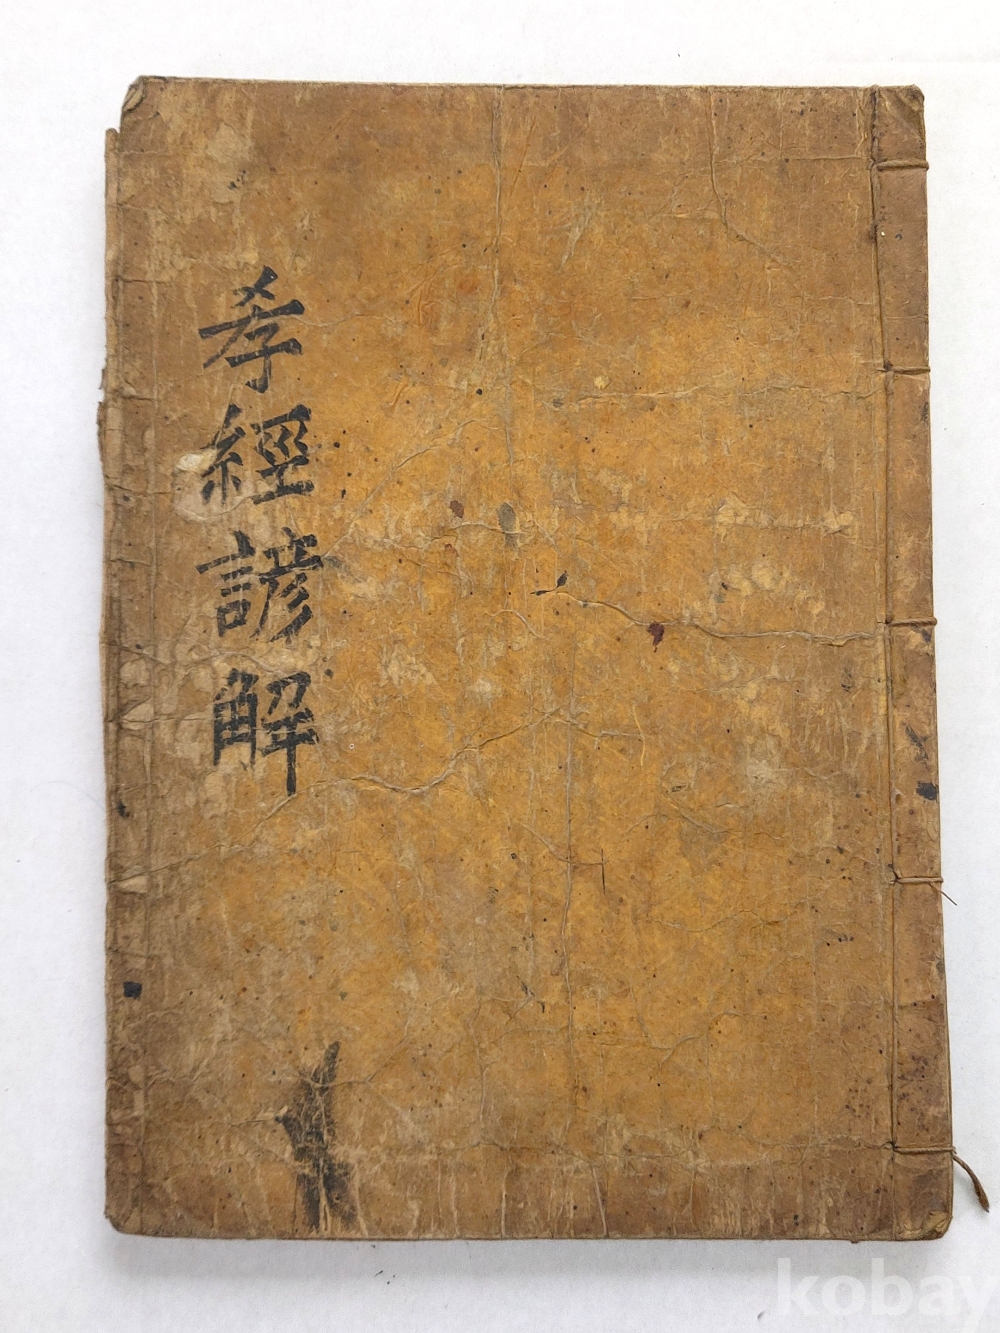 孝經諺解
kobay